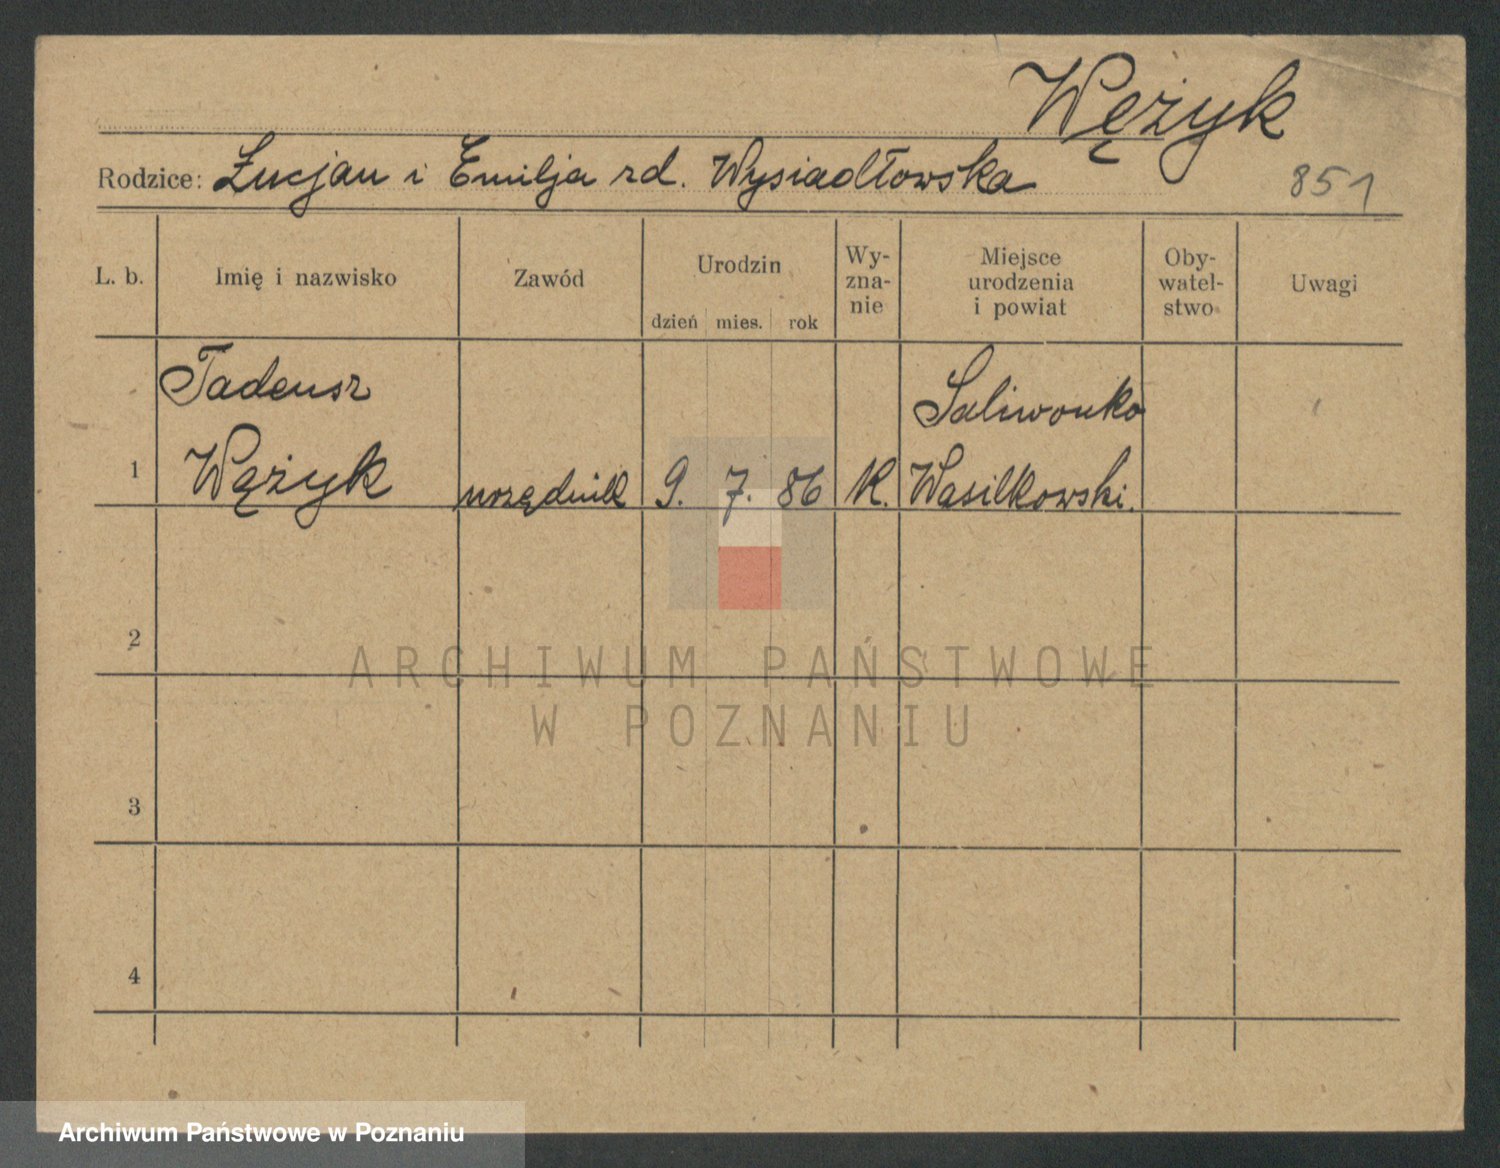 Wężyk
Rodzice: Łucjan i Emilja rd. Wysiadłowska
851
L. b.
Imię i nazwisko
Zawód
Urodzin
dzień mies. rok
Wy-
zna-
nie
Miejsce
urodzenia
i powiat
Oby-
watel-
stwo
Uwagi
Tadeusz
Saliwonko
1 Wężyk urzędnik 9. 7. 86 K. Wasilkowski.
2
ARCHIWUM PAŃSTWOWE
W POZNANIU
3
4
Archiwum Państwowe w Poznaniu